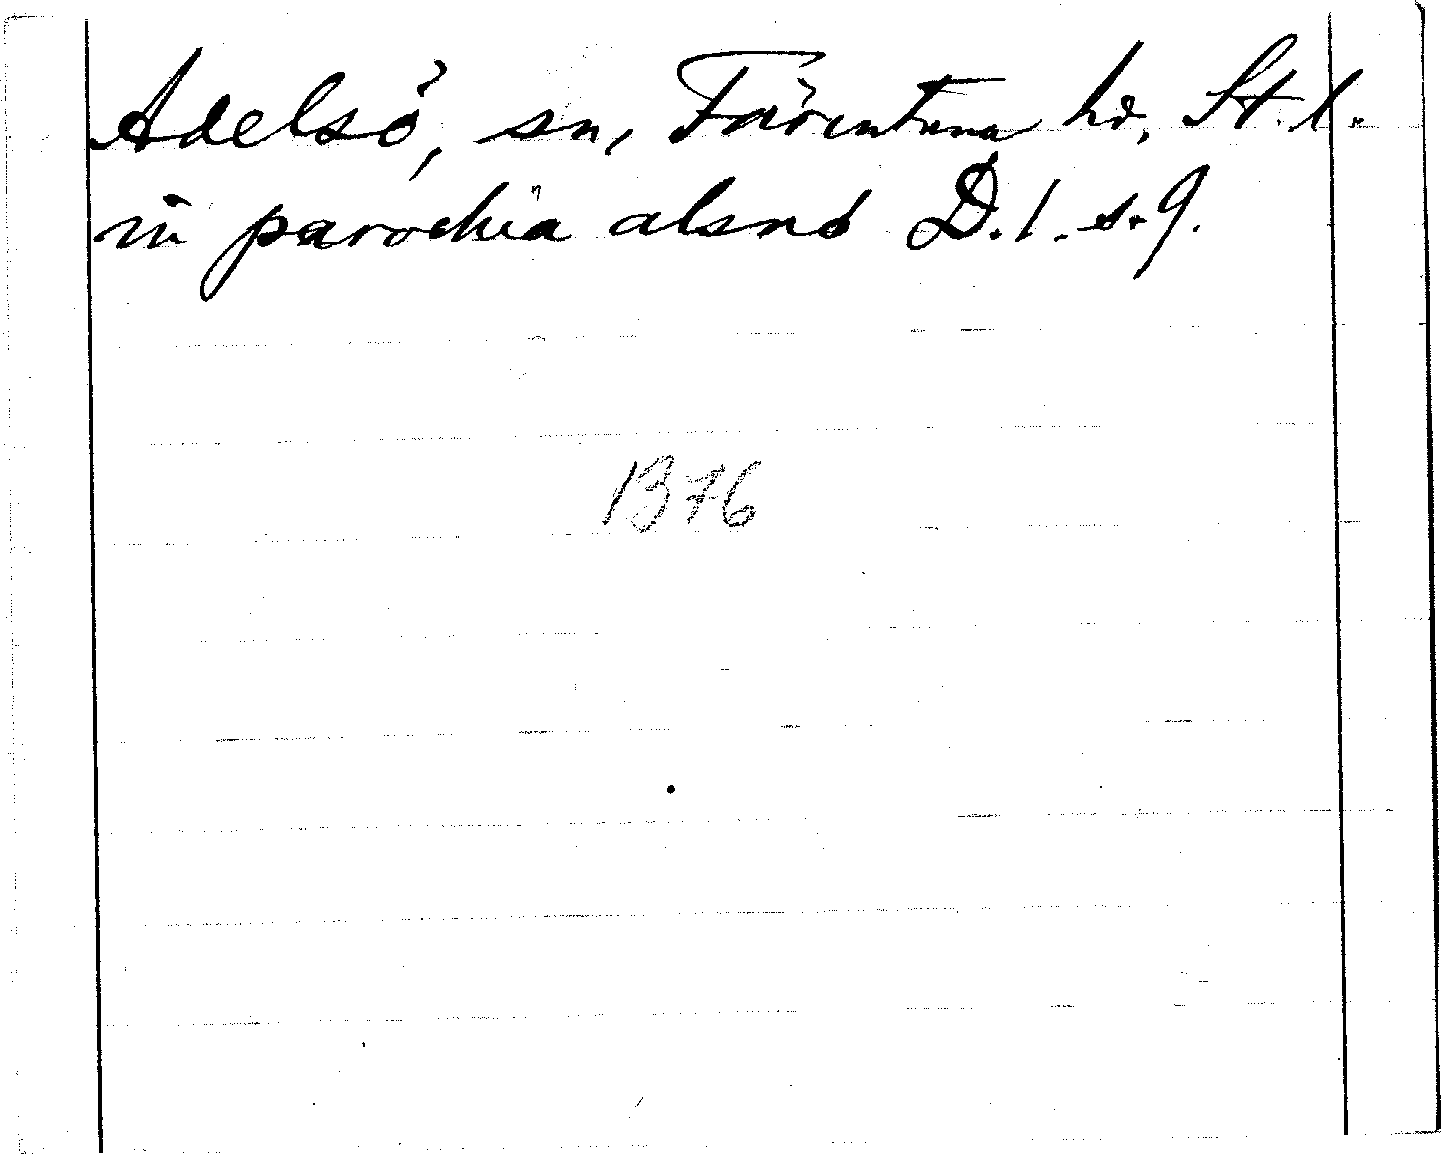 Adelsö, sn, Färentuna hd, St. l.
in parochia alsnö D. 1. s. 9.
1376